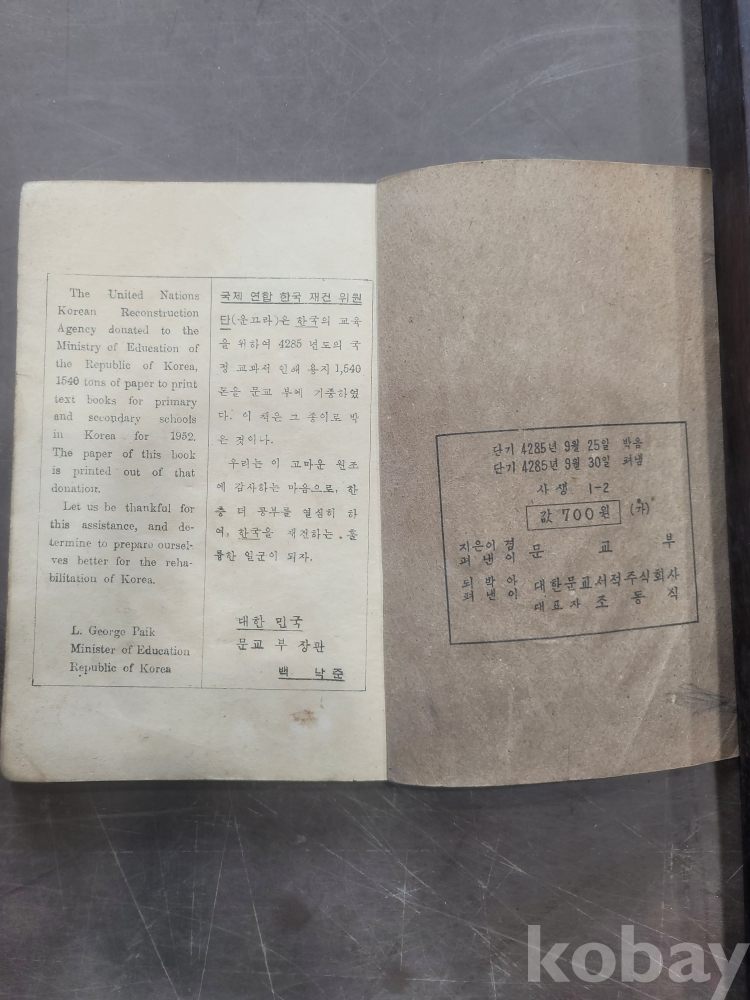 The United Nations
Korean Reconstruction
Agency donated to the
Ministry of Education of
the Republic of Korea,
1540 tons of paper to print
text books for primary
and secondary schools
in Korea for 1952.
The paper of this book
is printed out of that
donation.
Let us be thankful for
this assistance, and de-
termine to prepare oursel-
ves better for the reha-
bilitation of Korea.
L. George Paik
Minister of Education
Republic of Korea
국제 연합 한국 재건 위원
단(운끄라)은 한국의 교육
을 위하여 4285 년도의 국
정 교과서 인쇄 용지 1,540
톤을 문교 부에 기증하였
다. 이 책은 그 종이로 박
은 것이다.
우리는 이 고마운 원조
에 감사하는 마음으로, 한
층 더 공부를 열심히 하
여, 한국을 재건하는 훌
륭한 일군이 되자.
대한 민국
문교 부 장관
백 낙준
단기 4285년 9월 25일 박음
단기 4285년 9월 30일 펴냄
사생 1-2
값 700원 (가)
지은이 겸
펴낸이 문교부
되박아
펴낸이 대한문교서적주식회사
대표자 조동식
kobay